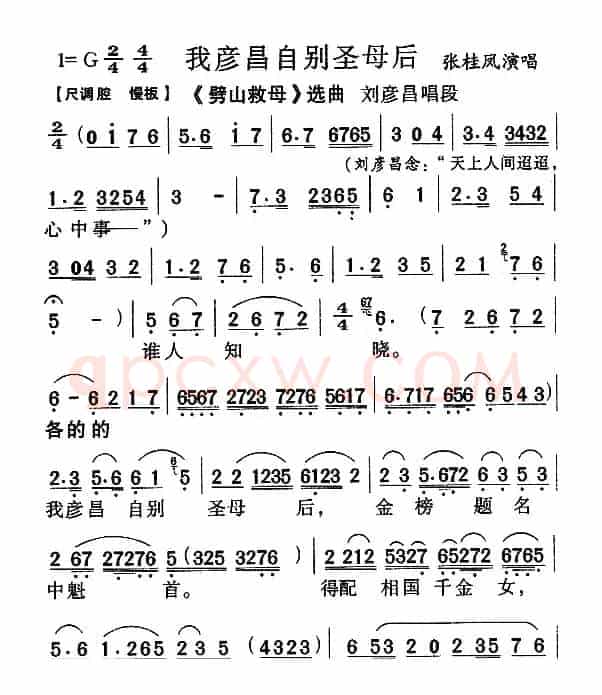 1=G 2/4 4/4 我彦昌自别圣母后 张桂凤演唱
【尺调腔 慢板】《劈山救母》选曲 刘彦昌唱段
2/4 (0 i 7 6 | 5.6 i 7 | 6.7 6765 | 3 0 4 | 3.4 3432 |
(刘彦昌念:“天上人间迢迢,
1.2 3254 | 3 - | 7.3 2365 | 6 1 | 2.3 5 4 |
心中事——”)
3 04 3 2 | 1.2 7 6 | 5. 6 | 1.2 3 5 | 2 1 7 6 |
5 -) | 5 6 7 | 2 6 7 2 | 4/4 6. (7 2 6 7 2 |
谁人 知 晓。
qpcxw.COM
6 - 6 2 1 7 | 6567 2723 7276 5617 | 6.717 656 6 5 4 3) |
各的的
2.3 5.6 6 1 5 | 2 2 1235 6123 2 | 2 3 5.672 6 3 5 3 |
我彦昌 自别 圣母 后, 金 榜 题 名
2 67 27276 5 (325 3276) | 2 212 5327 65272 6765 |
中魁 首。 得配 相国 千金 女,
5.6 1.265 2 3 5 (4323) | 6 53 2 0 2 35 7 6